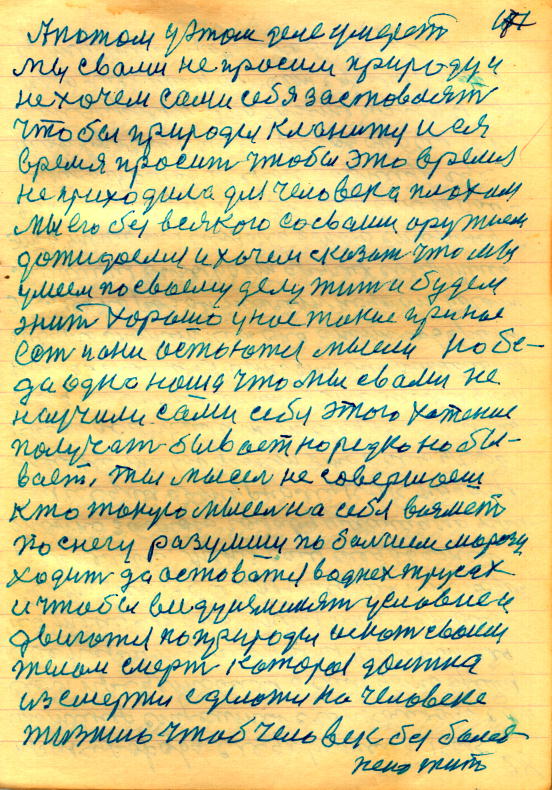 Апотом уэтом деле умереть
мы свами не просим природу и
не хочем сами себя застовлять
чтобы природы кланитця
время просить чтобы это время
не приходила для человека плохим
мы его без всякого сосвоми оружием
дожидаемя и хочем сказать что мы
умеем посвоему делу жить и будем
жить хорошо у нас такие
остаются мысли но бе-
да одна наша что мы свами не
научили сами себя этого хотение
получать бывает но редко но бы-
вает, ты мысел не совершаеш
кто такую мысел на себя возмет
по снегу разумши по балшим морозу
ходить да остоватся водних трусах
и чтобы виду неменять условией
двигатся поприроды искать своим
телом смерт которая должна
из смерти зделатя на человеке
жизнию чтоб человек без болез
нено жить